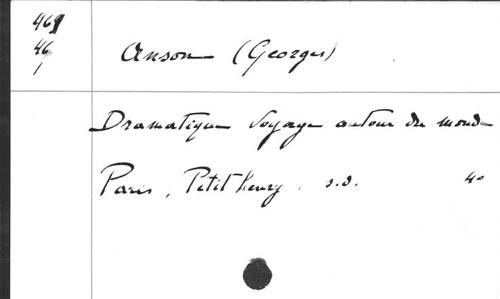 469
46
1
Anson (Georges)
Dramatique Voyage autour du monde
Paris, Petit henry. s.d. 4o